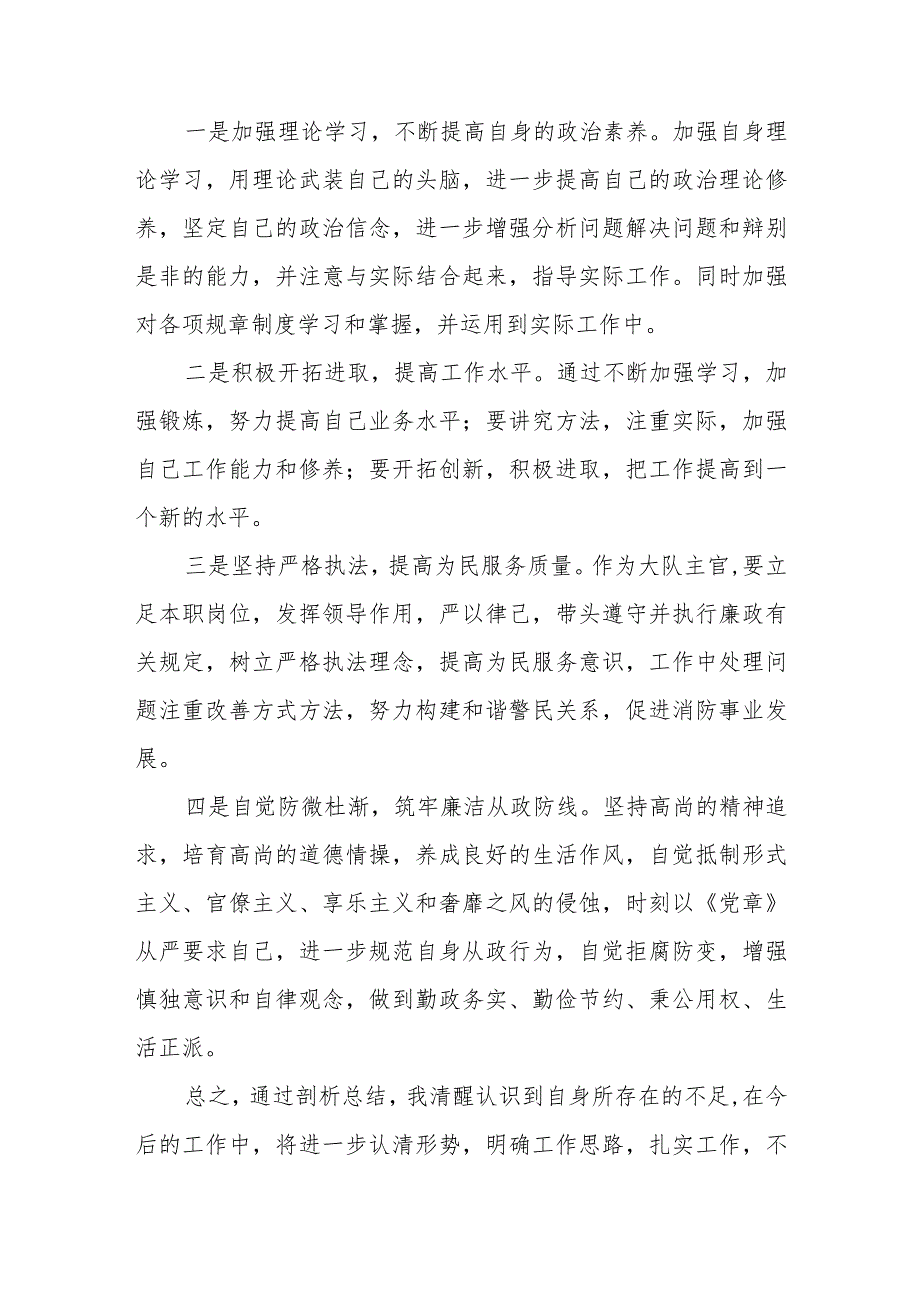 一是加强理论学习，不断提高自身的政治素养。加强自身理
论学习，用理论武装自己的头脑，进一步提高自己的政治理论修
养，坚定自己的政治信念，进一步增强分析问题解决问题和辩别
是非的能力，并注意与实际结合起来，指导实际工作。同时加强
对各项规章制度学习和掌握，并运用到实际工作中。
二是积极开拓进取，提高工作水平。通过不断加强学习，加
强锻炼，努力提高自己业务水平；要讲究方法，注重实际，加强
自己工作能力和修养；要开拓创新，积极进取，把工作提高到一
个新的水平。
三是坚持严格执法，提高为民服务质量。作为大队主官,要立
足本职岗位，发挥领导作用，严以律己，带头遵守并执行廉政有
关规定，树立严格执法理念，提高为民服务意识，工作中处理问
题注重改善方式方法，努力构建和谐警民关系，促进消防事业发
展。
四是自觉防微杜渐，筑牢廉洁从政防线。坚持高尚的精神追
求，培育高尚的道德情操，养成良好的生活作风，自觉抵制形式
主义、官僚主义、享乐主义和奢靡之风的侵蚀，时刻以《党章》
从严要求自己，进一步规范自身从政行为，自觉拒腐防变，增强
慎独意识和自律观念，做到勤政务实、勤俭节约、秉公用权、生
活正派。
总之，通过剖析总结，我清醒认识到自身所存在的不足,在今
后的工作中，将进一步认清形势，明确工作思路，扎实工作，不